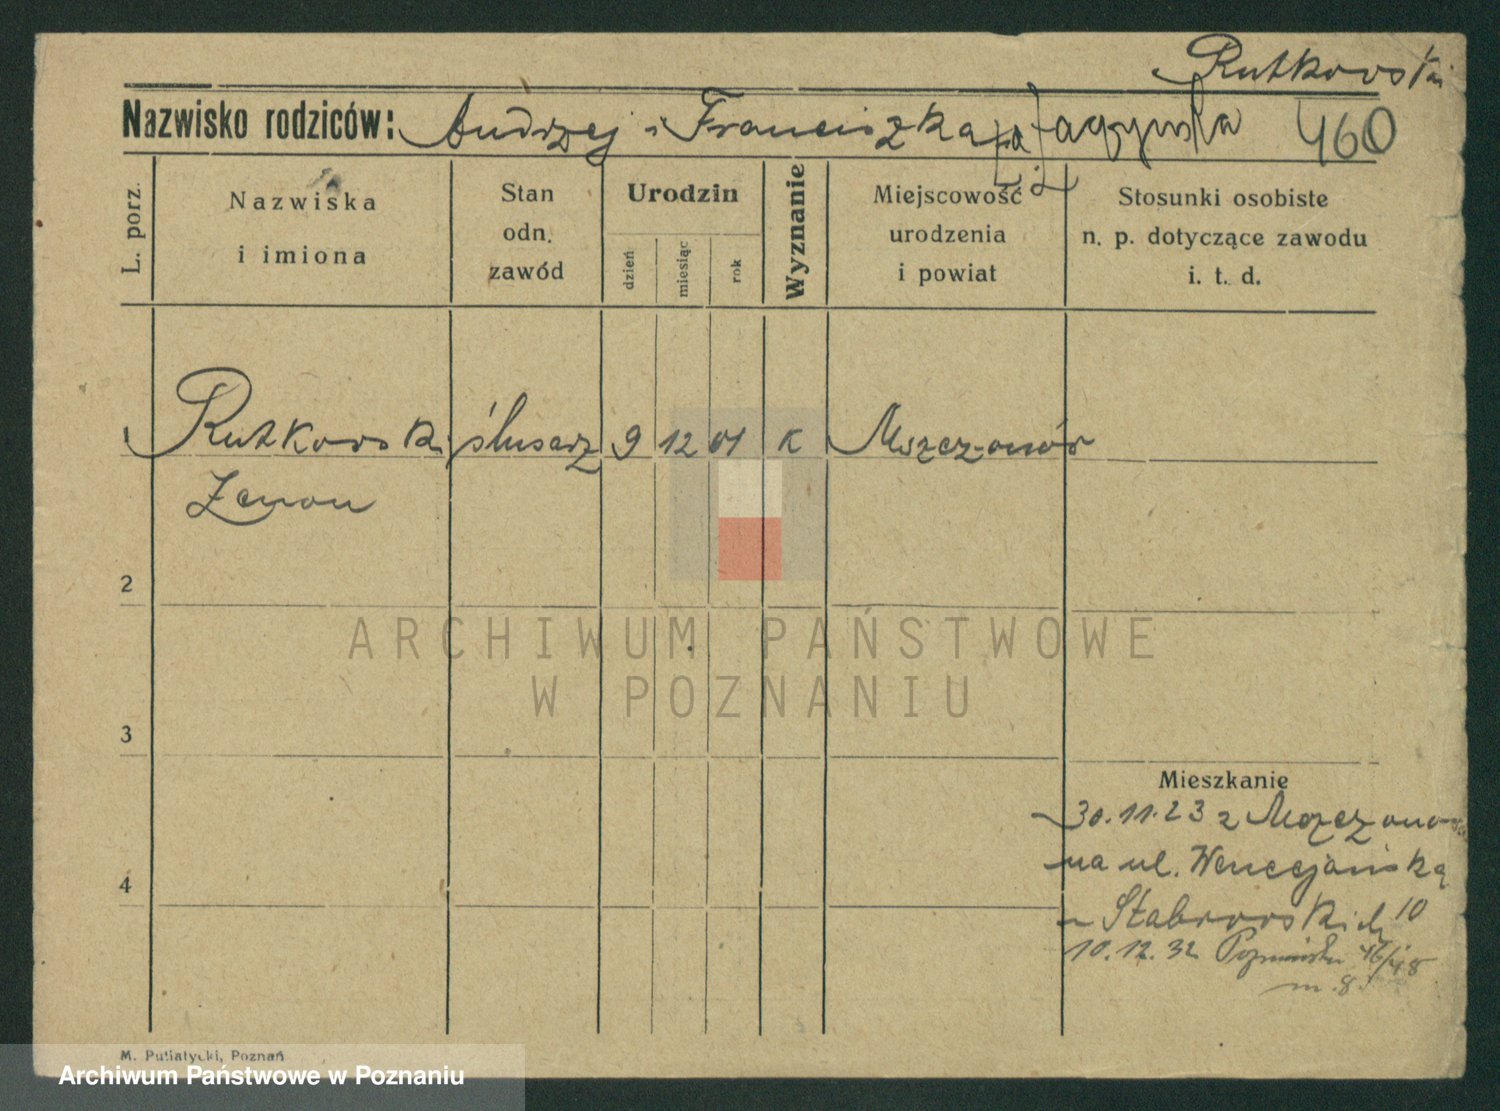 Rutkowski
Nazwisko rodziców: Andrzej i Franciszka
460
L. porz.
Nazwiska
i imiona
Stan
odn.
zawód
Urodzin
dzień
miesiąc
rok
Wyznanie
Miejscowość
urodzenia
i powiat
Stosunki osobiste
n. p. dotyczące zawodu
i. t. d.
1 Rutkowski ślusarz 9 12 01 K Mszczonów
Zenon
2
ARCHIWUM PAŃSTWOWE
W POZNANIU
3
Mieszkanie
30.11.23 z Mszczonowa
na ul. Wenecjańską
4
Stabrowskich 10
10.12.32 46/48
m. 8.
M. Putiatycki, Poznań
Archiwum Państwowe w Poznaniu